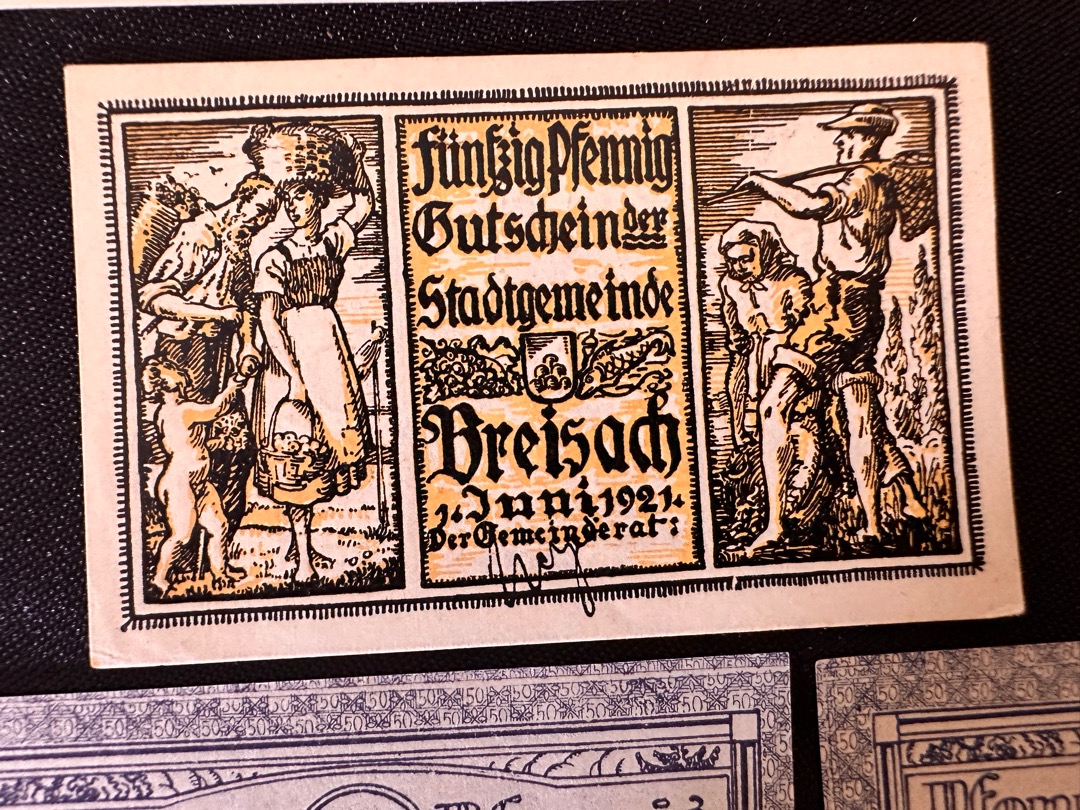 Fünfzig Pfennig
Gutschein der
Stadtgemeinde
Breisach
1. Juni 1921.
Der Gemeinderat:
50 50 50 50 50 50 50 50
50 50 50
50
50